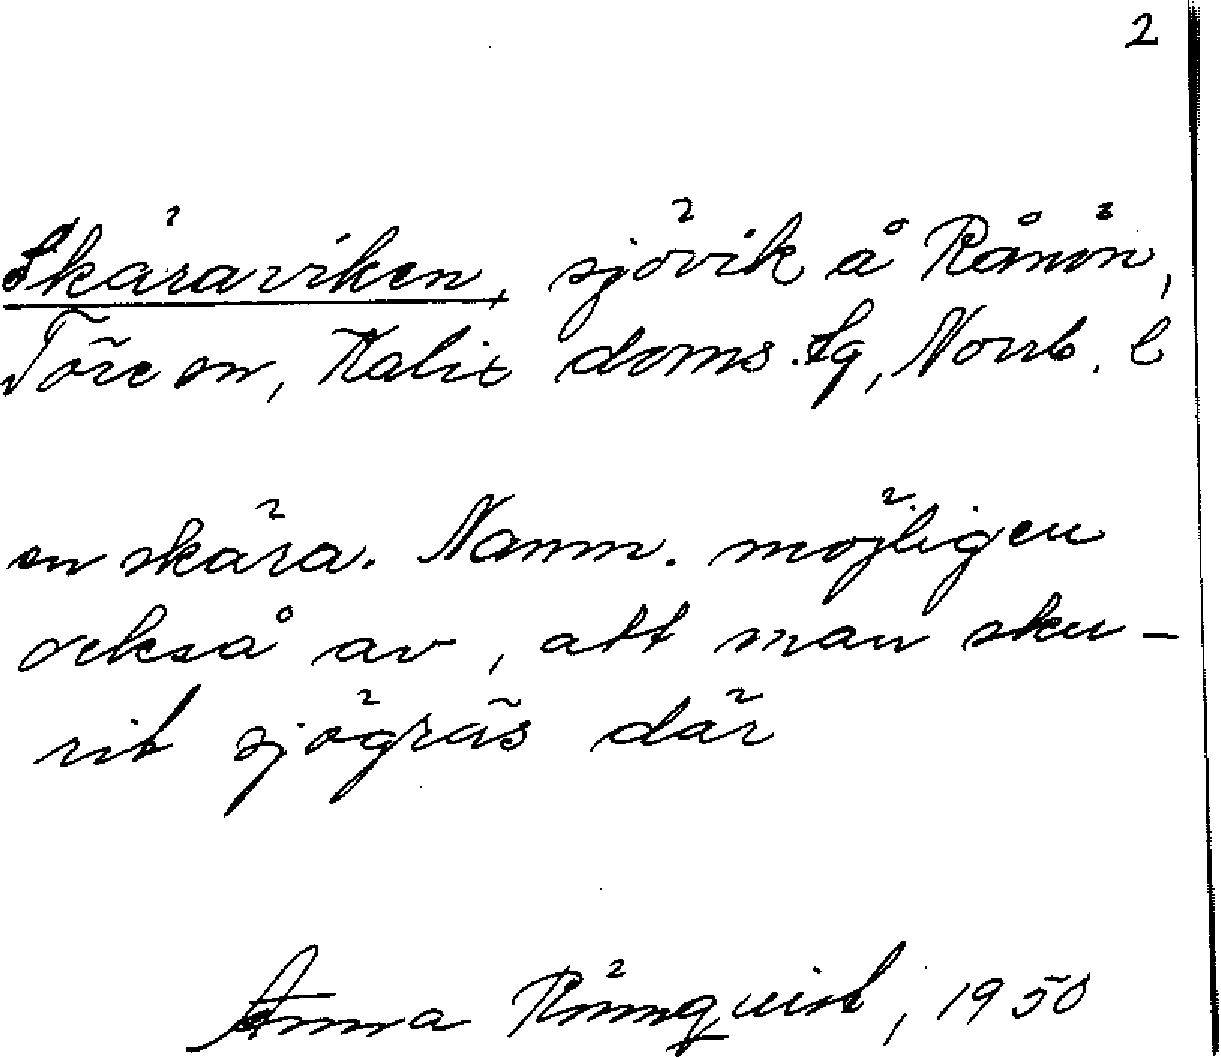 2
Skäraviken, sjövik å Rånön,
Töre sn, Kalix doms. tg, Norrb. l
en skära. Namn. möjligen
också av, att man sku-
rit sjögräs där
Anna Rönnquist, 1950